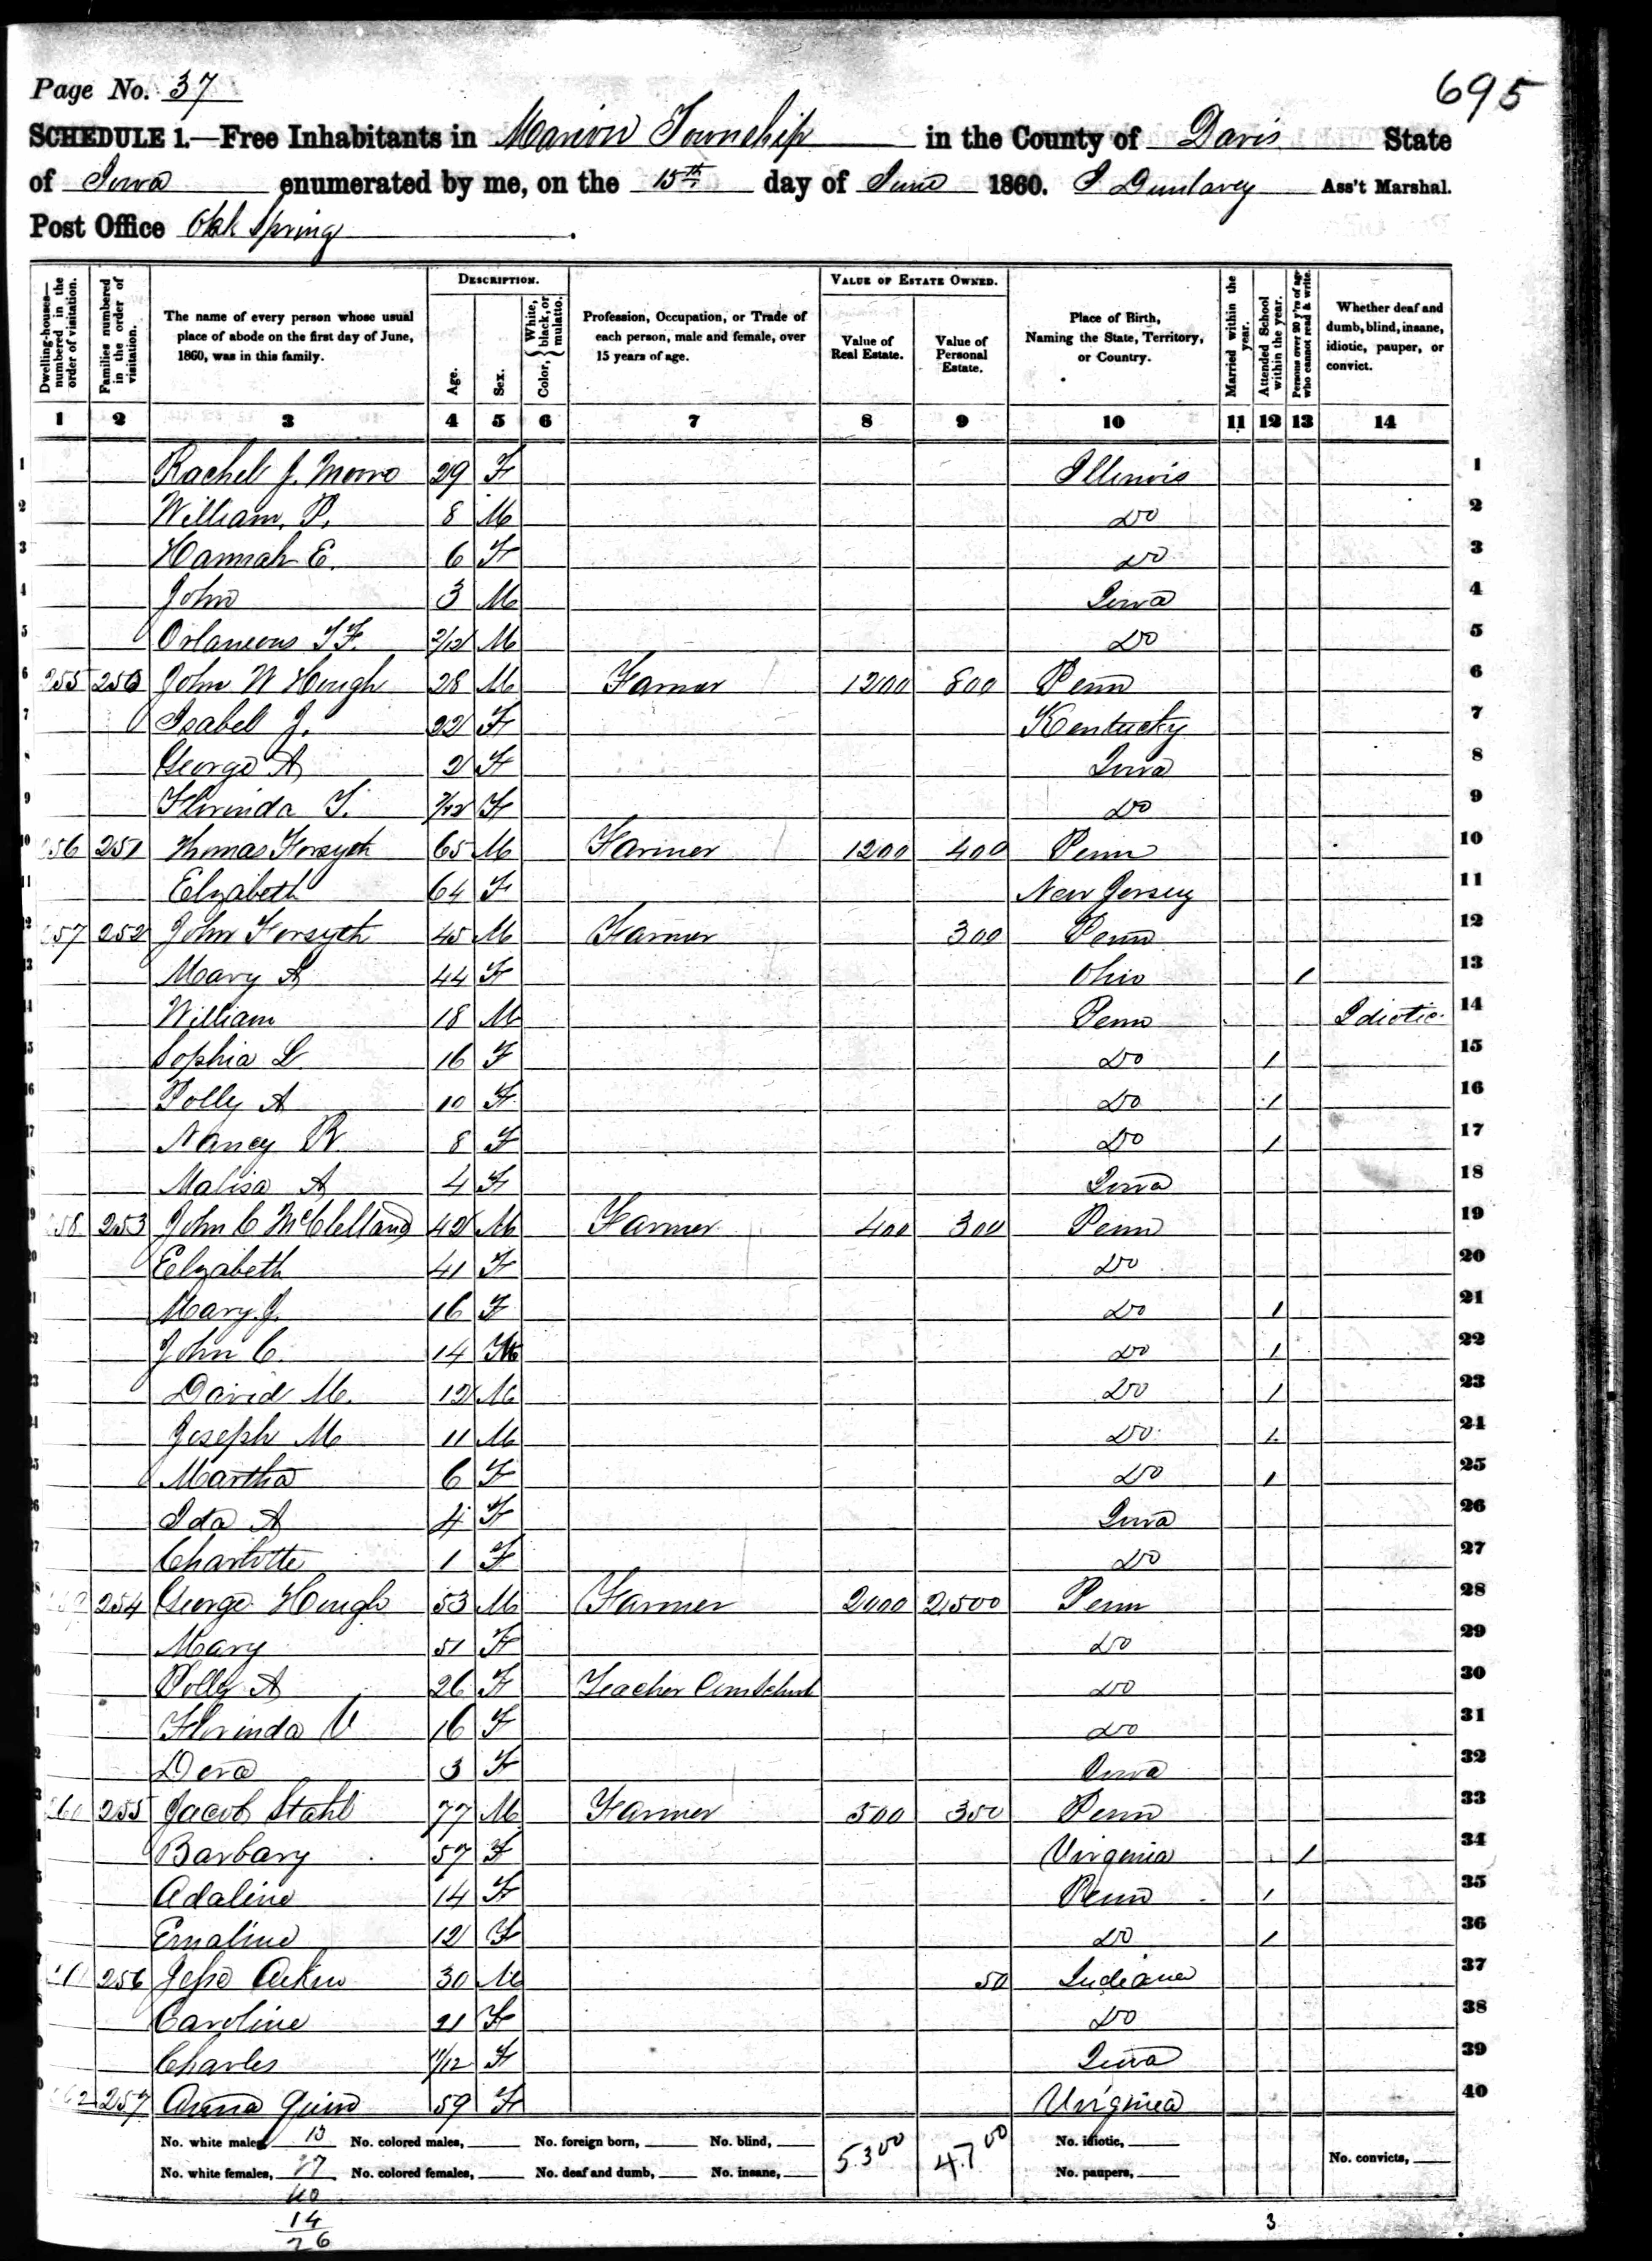 Page No. 37
695
SCHEDULE 1.—Free Inhabitants in Marion Township in the County of Davis State
of Iowa enumerated by me, on the 15th day of June 1860. Dunlavey Ass't Marshal.
Post Office Oak Spring.
Dwelling-houses—numbered in the order of visitation.
Families numbered in the order of visitation.
The name of every person whose usual place of abode on the first day of June, 1860, was in this family.
DESCRIPTION.
Age.
Sex.
Color, { White, black, or mulatto.
Profession, Occupation, or Trade of each person, male and female, over 15 years of age.
VALUE OF ESTATE OWNED.
Value of Real Estate.
Value of Personal Estate.
Place of Birth, Naming the State, Territory, or Country.
Married within the year.
Attended School within the year.
Persons over 20 y'rs of age who cannot read & write.
Whether deaf and dumb, blind, insane, idiotic, pauper, or convict.
1 2 3 4 5 6 7 8 9 10 11 12 13 14
1 Rachel J. Moore 29 F Illinois 1
2 William. P. 8 M Do 2
3 Hannah E. 6 F Do 3
4 John 3 M Iowa 4
5 M Do 5
6 255 250 John W Hough 28 M Farmer 1200 800 Penn 6
7 Isabel J. 22 F Kentucky 7
George A 2 F Iowa 8
9 Florinda T. 7/12 F Do 9
10 256 251 Thomas Forsyth 65 M Farmer 1200 400 Penn 10
11 Elizabeth 64 F New Jersey 11
257 252 John Forsyth 45 M Farmer 300 Penn 12
Mary A 44 F Ohio 1 13
William 18 M Penn Idiotic 14
Sophia L. 16 F Do 1 15
Polly A 10 F Do 1 16
Nancy R 8 F Do 1 17
Malisa A 4 F Iowa 18
258 253 John C McClelland 42 M Farmer 400 300 Penn 19
Elizabeth 41 F Do 20
Mary J. 16 F Do 1 21
John C. 14 M Do 1 22
David M. 12 M Do 1 23
Joseph M 11 M Do 1 24
Martha 6 F Do 1 25
Ida A 4 F Iowa 26
Charlotte 1 F Do 27
254 George Hough 53 M Farmer 2000 2500 Penn 28
Mary 51 F Do 29
Polly A 26 F Teacher Com School Do 30
Florinda V 16 F Do 31
Dora 3 F Iowa 32
260 255 Jacob Stahl 77 M Farmer 500 350 Penn 33
Barbary 57 F Virginia 1 34
Adaline 14 F Penn 1 35
Emaline 12 F Do 1 36
256 Jesse 30 M 50 Indiana 37
Caroline 21 F Do 38
Charles 11/12 F Iowa 39
262 257 Anna 59 F Virginia 40
No. white males, 13 No. colored males, No. foreign born, No. blind, 5300 4700 No. idiotic,
No. white females, 27 No. colored females, No. deaf and dumb, No. insane, No. paupers, No. convicts,
40
14
26
3